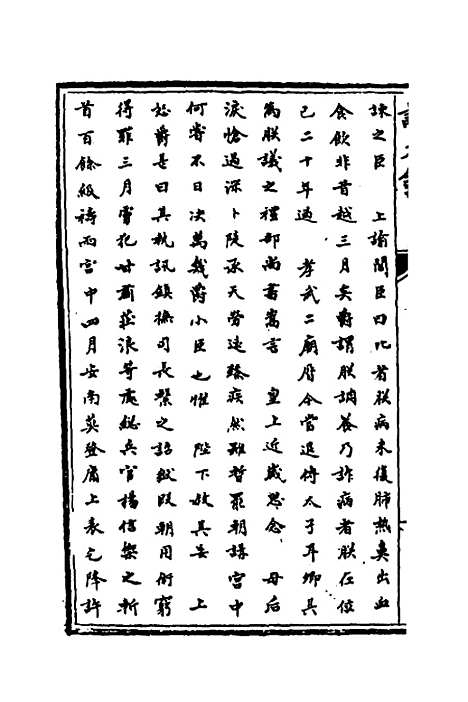 諫之臣　上諭閣臣曰比者朕病未復肺熱鼻出血
食飲非昔越三月矣爵謂朕調養乃詐病者朕在位
已二十年過　孝武二廟曆令當退傳太子耳卿其
為朕議之禮部尚書嵩言　皇上近歲思念　母后
淚愴過深卜陵承天勞遠臻疾然雖暫罷朝講宮中
何嘗不日决萬幾爵小臣也惟　陛下赦其妄　上
怒爵是日其執訊鎮撫司長繫之詔獄段朝用術窮
得罪三月虜犯甘肅莊浪等處總兵官楊信禦之斬
首百餘級禱雨宮中四月安南莫登庸上表乞降許